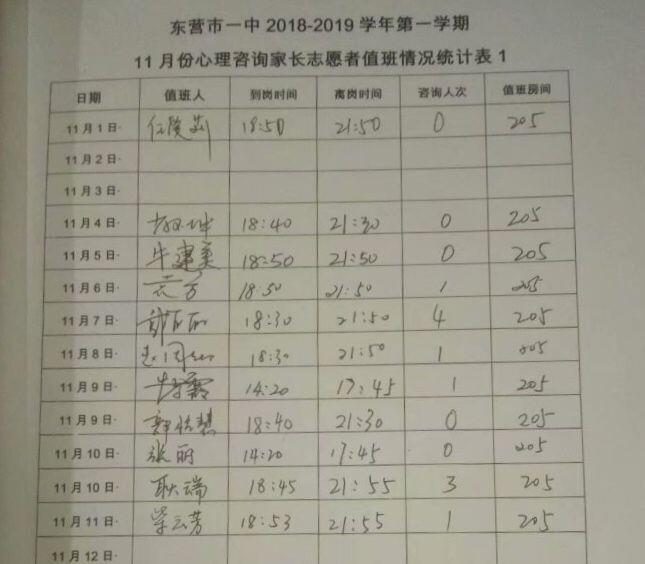 东营市一中 2018-2019 学年第一学期
11 月份心理咨询家长志愿者值班情况统计表 1
日期 值班人 到岗时间 离岗时间 咨询人次 值班房间
11月1日 18:50 21:50 0 205
11月2日
11月3日
11月4日 18:40 21:30 0 205
11月5日 牛建美 18:50 21:50 0 205
11月6日 18:50 21:50 1 205
11月7日 18:30 21:50 4 205
11月8日 18:30 21:50 1 205
11月9日 14:20 17:45 1 205
11月9日 18:40 21:30 0 205
11月10日 张丽 14:20 17:45 0 205
11月10日 耿端 18:45 21:55 3 205
11月11日 柴云芳 18:53 21:55 1 205
11月12日